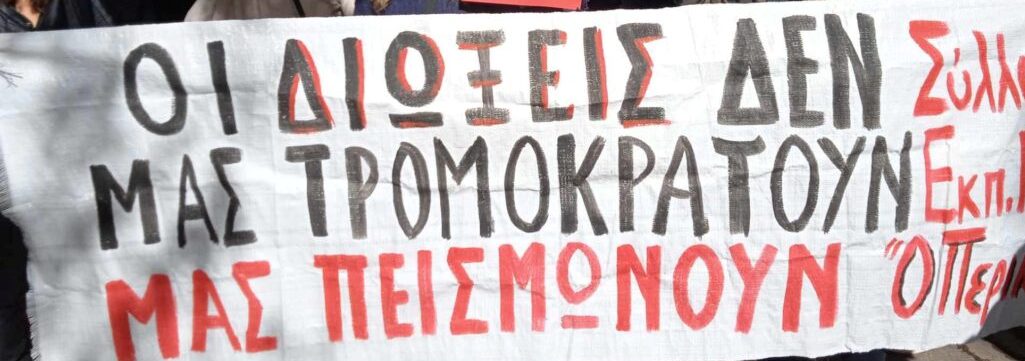 ΟΙ ΔΙΩΞΕΙΣ ΔΕΝ
ΜΑΣ ΤΡΟΜΟΚΡΑΤΟΥΝ
ΜΑΣ ΠΕΙΣΜΩΝΟΥΝ
Εκπ.